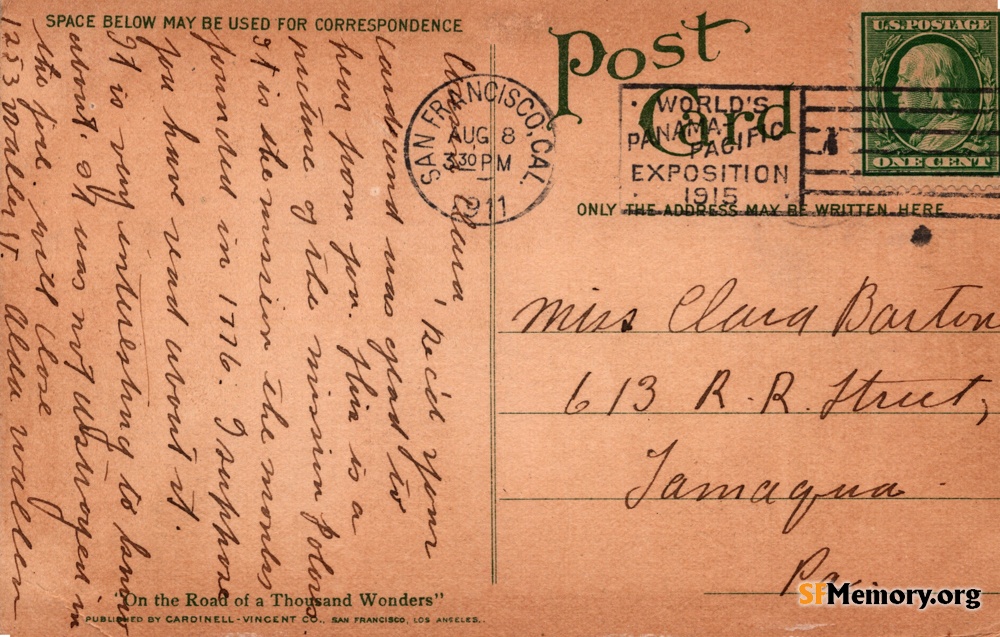 SPACE BELOW MAY BE USED FOR CORRESPONDENCE
Post
Card
U.S. POSTAGE
ONE CENT
SAN FRANCISCO, CAL.
AUG 8
3 30 PM
1911
WORLD'S
PANAMA PACIFIC
EXPOSITION
1915
ONLY THE ADDRESS MAY BE WRITTEN HERE
Dear Clara, Rec'd your
card and was glad to
hear from you. This is a
picture of the mission Dolores
It is the mission the monks
founded in 1776. I suppose
you have read about it.
It is very interesting to know
about. It was not destroyed in
the fire. will close
1253 Waller St. Clara Wallen
Miss Clara Barton
613 R. R. Street,
Tamaqua
Pa.
"On the Road of a Thousand Wonders"
PUBLISHED BY CARDINELL-VINCENT CO., SAN FRANCISCO, LOS ANGELES..
SFMemory.org